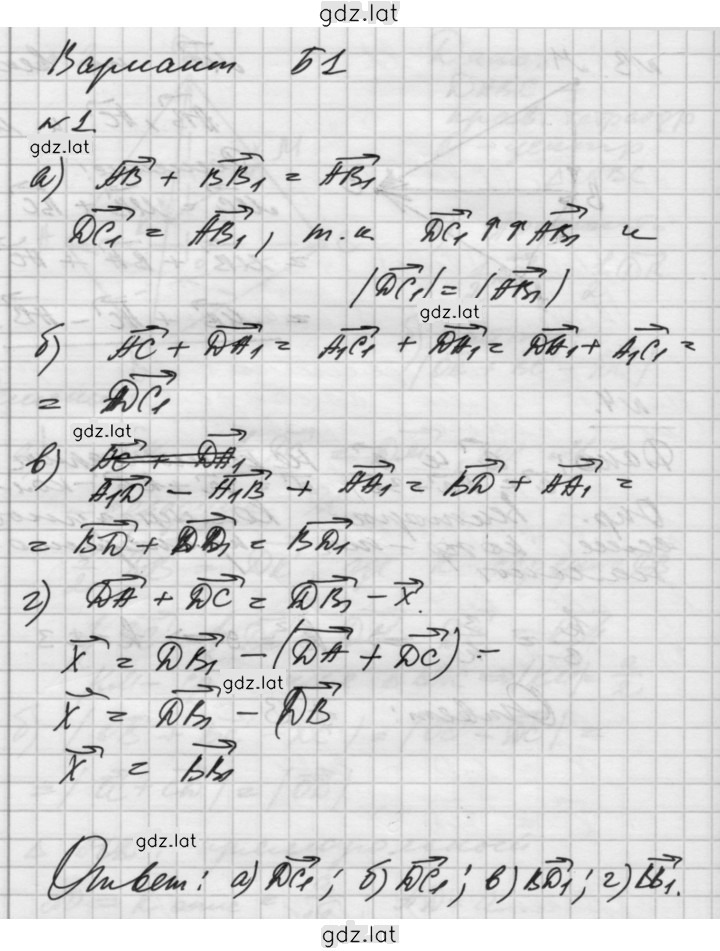 gdz.lat
Вариант Б1
№1.
gdz.lat
а) AB + BB₁ = AB₁
DC₁ = AB₁, т.к DC₁ ↑↑ AB₁ и
|DC₁| = |AB₁|
gdz.lat
б) AC + DA₁ = A₁C₁ + DA₁ = DA₁ + A₁C₁ =
= DC₁
gdz.lat
в) AC + DA₁
A₁D − A₁B + AA₁ = BD + AA₁ =
= BD + DD₁ = BD₁
г) DA + DC = DB₁ − X.
X = DB₁ − (DA + DC) =
gdz.lat
X = DB₁ − (DB
X = BB₁
gdz.lat
Ответ: а) DC₁; б) DC₁; в) BD₁; г) BB₁.
gdz.lat